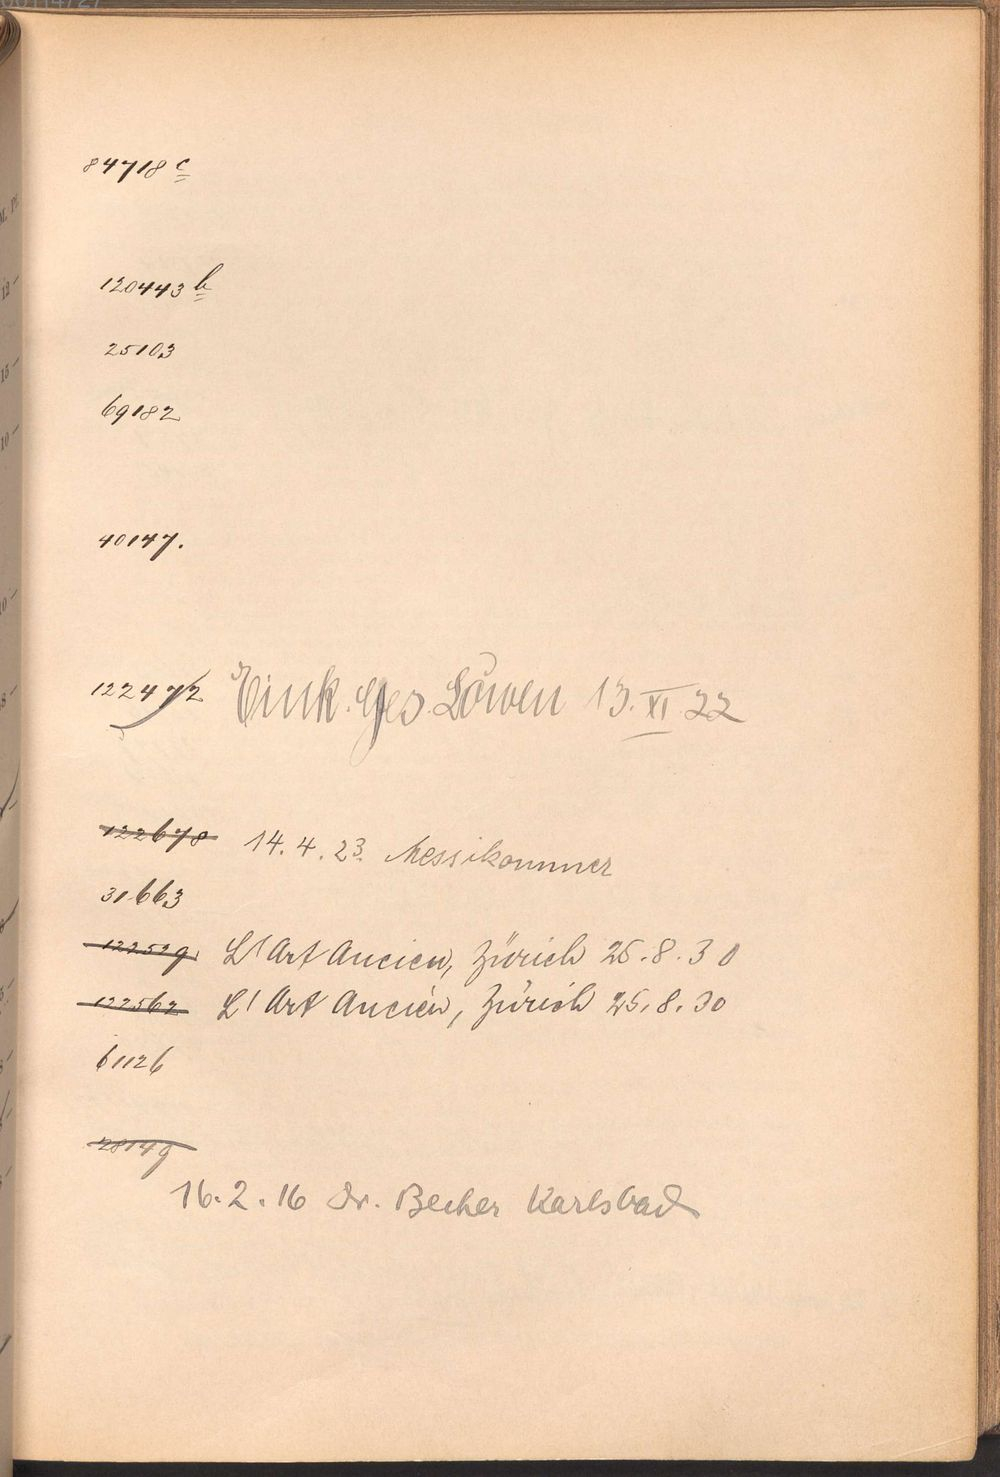 84718 c
120443 b
25103
69182
40147.
122472 Eink. Ges. Löwen 13. XI 22
122678 14.4.23. Messikommer
31663
122529 L'Art Ancien, Zürich 25.8.30
122562 L'Art Ancien, Zürich 25.8.30
61126
28149
16.2.16 Dr. Becher Karlsbad